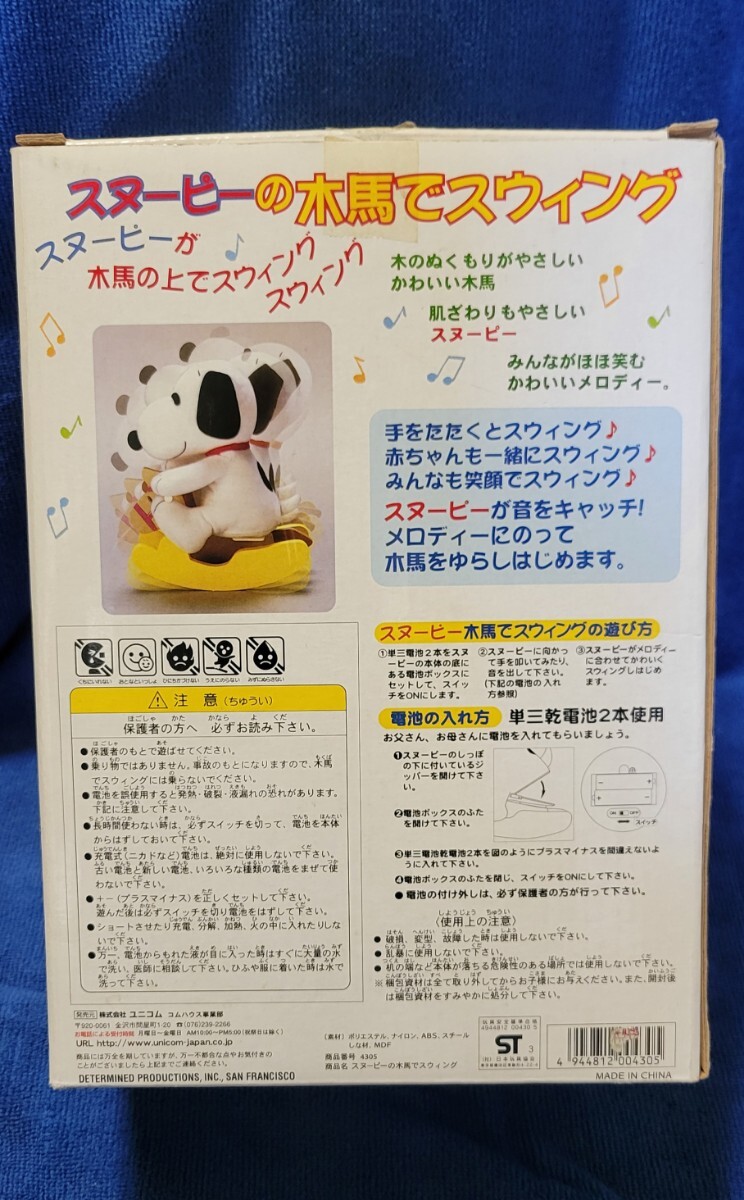 スヌーピーの木馬でスウィング
スヌーピーが
木馬の上でスウィング
スウィング
木のぬくもりがやさしい
かわいい木馬
肌ざわりもやさしい
スヌーピー
みんながほほ笑む
かわいいメロディー。
手をたたくとスウィング♪
赤ちゃんも一緒にスウィング♪
みんなも笑顔でスウィング♪
スヌーピーが音をキャッチ!
メロディーにのって
木馬をゆらしはじめます。
スヌーピー木馬でスウィングの遊び方
①単三電池2本をスヌーピーの本体の底にある電池ボックスにセットして、スイッチをONにします。
②スヌーピーに向かって手を叩いてみたり、音を出して下さい。(下記の電池の入れ方参照)
③スヌーピーがメロディーに合わせてかわいくスウィングしはじめます。
電池の入れ方 単三乾電池2本使用
お父さん、お母さんに電池を入れてもらいましょう。
❶スヌーピーのしっぽ
の下に付いているジ
ッパーを開けて下さ
い。
❷電池ボックスのふた
を開けて下さい。
ON OFF
スイッチ
❸単三乾電池2本を図のようにプラスマイナスを間違えないよ
うに入れて下さい。
❹電池ボックスのふたを閉じ、スイッチをONにして下さい。
● 電池の付け外しは、必ず保護者の方が行って下さい。
〈使用上の注意〉
● 破損、変型、故障した時は使用しないで下さい。
● 乱暴に使用しないで下さい。
● 机の端など本体が落ちる危険性のある場所では使用しないで下さい。
※梱包資材は全て取り外してからお子様にお与えください。また、開封後
は梱包資材をすみやかに処分して下さい。
くちにいれない おとなといっしょ ひにちかづけない うえにのらない みずにぬらさない
注意(ちゅうい)
保護者の方へ 必ずお読み下さい。
●保護者のもとで遊ばせてください。
●乗り物ではありません。事故のもとになりますので、木馬
でスウィングには乗らないでください。
●電池を誤使用すると発熱・破裂・液漏れの恐れがあります。
下記に注意して下さい。
●長時間使わない時は、必ずスイッチを切って、電池を本体
からはずしておいて下さい。
●充電式(ニカドなど)電池は、絶対に使用しないで下さい。
古い電池と新しい電池、いろいろな種類の電池をまぜて使
わないで下さい。
●+−(プラスマイナス)を正しくセットして下さい。
遊んだ後は必ずスイッチを切り電池をはずして下さい。
●ショートさせたり充電、分解、加熱、火の中に入れたりしな
いで下さい。
●万一、電池からもれた液が目に入った時はすぐに大量の水
で洗い、医師に相談して下さい。ひふや服に着いた時は水で
洗って下さい。
発売元 株式会社 ユニコム コムハウス事業部
〒920-0061 金沢市問屋町1-20 ☎(076)239-2266
お電話による受付時間 月曜日〜金曜日 AM10:00〜PM5:00(祝祭日は除く)
URL http://www.unicom-japan.co.jp
商品には万全を期していますが、万一不都合な点やお気付きの
ことがございましたら上記までご連絡ください。
DETERMINED PRODUCTIONS, INC., SAN FRANCISCO
(素材) ポリエステル、ナイロン、ABS、スチール
しな材、MDF
商品番号 4305
商品名 スヌーピーの木馬でスウィング
玩具安全基準合格
4944812 00430 5
ST 3
(社)日本玩具協会
4 944812 004305
MADE IN CHINA